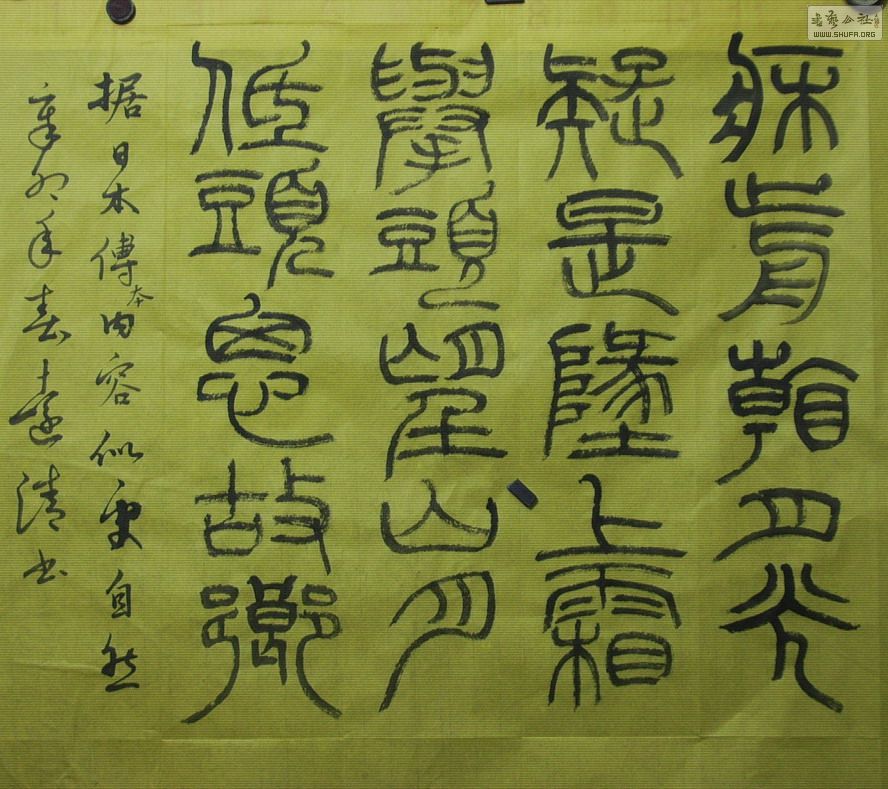 牀前看月光
疑是地上霜
舉頭望山月
低頭思故鄉
据日本傳本内容似更自然
辛卯年春遠清书
书艺公社
WWW.SHUFA.ORG